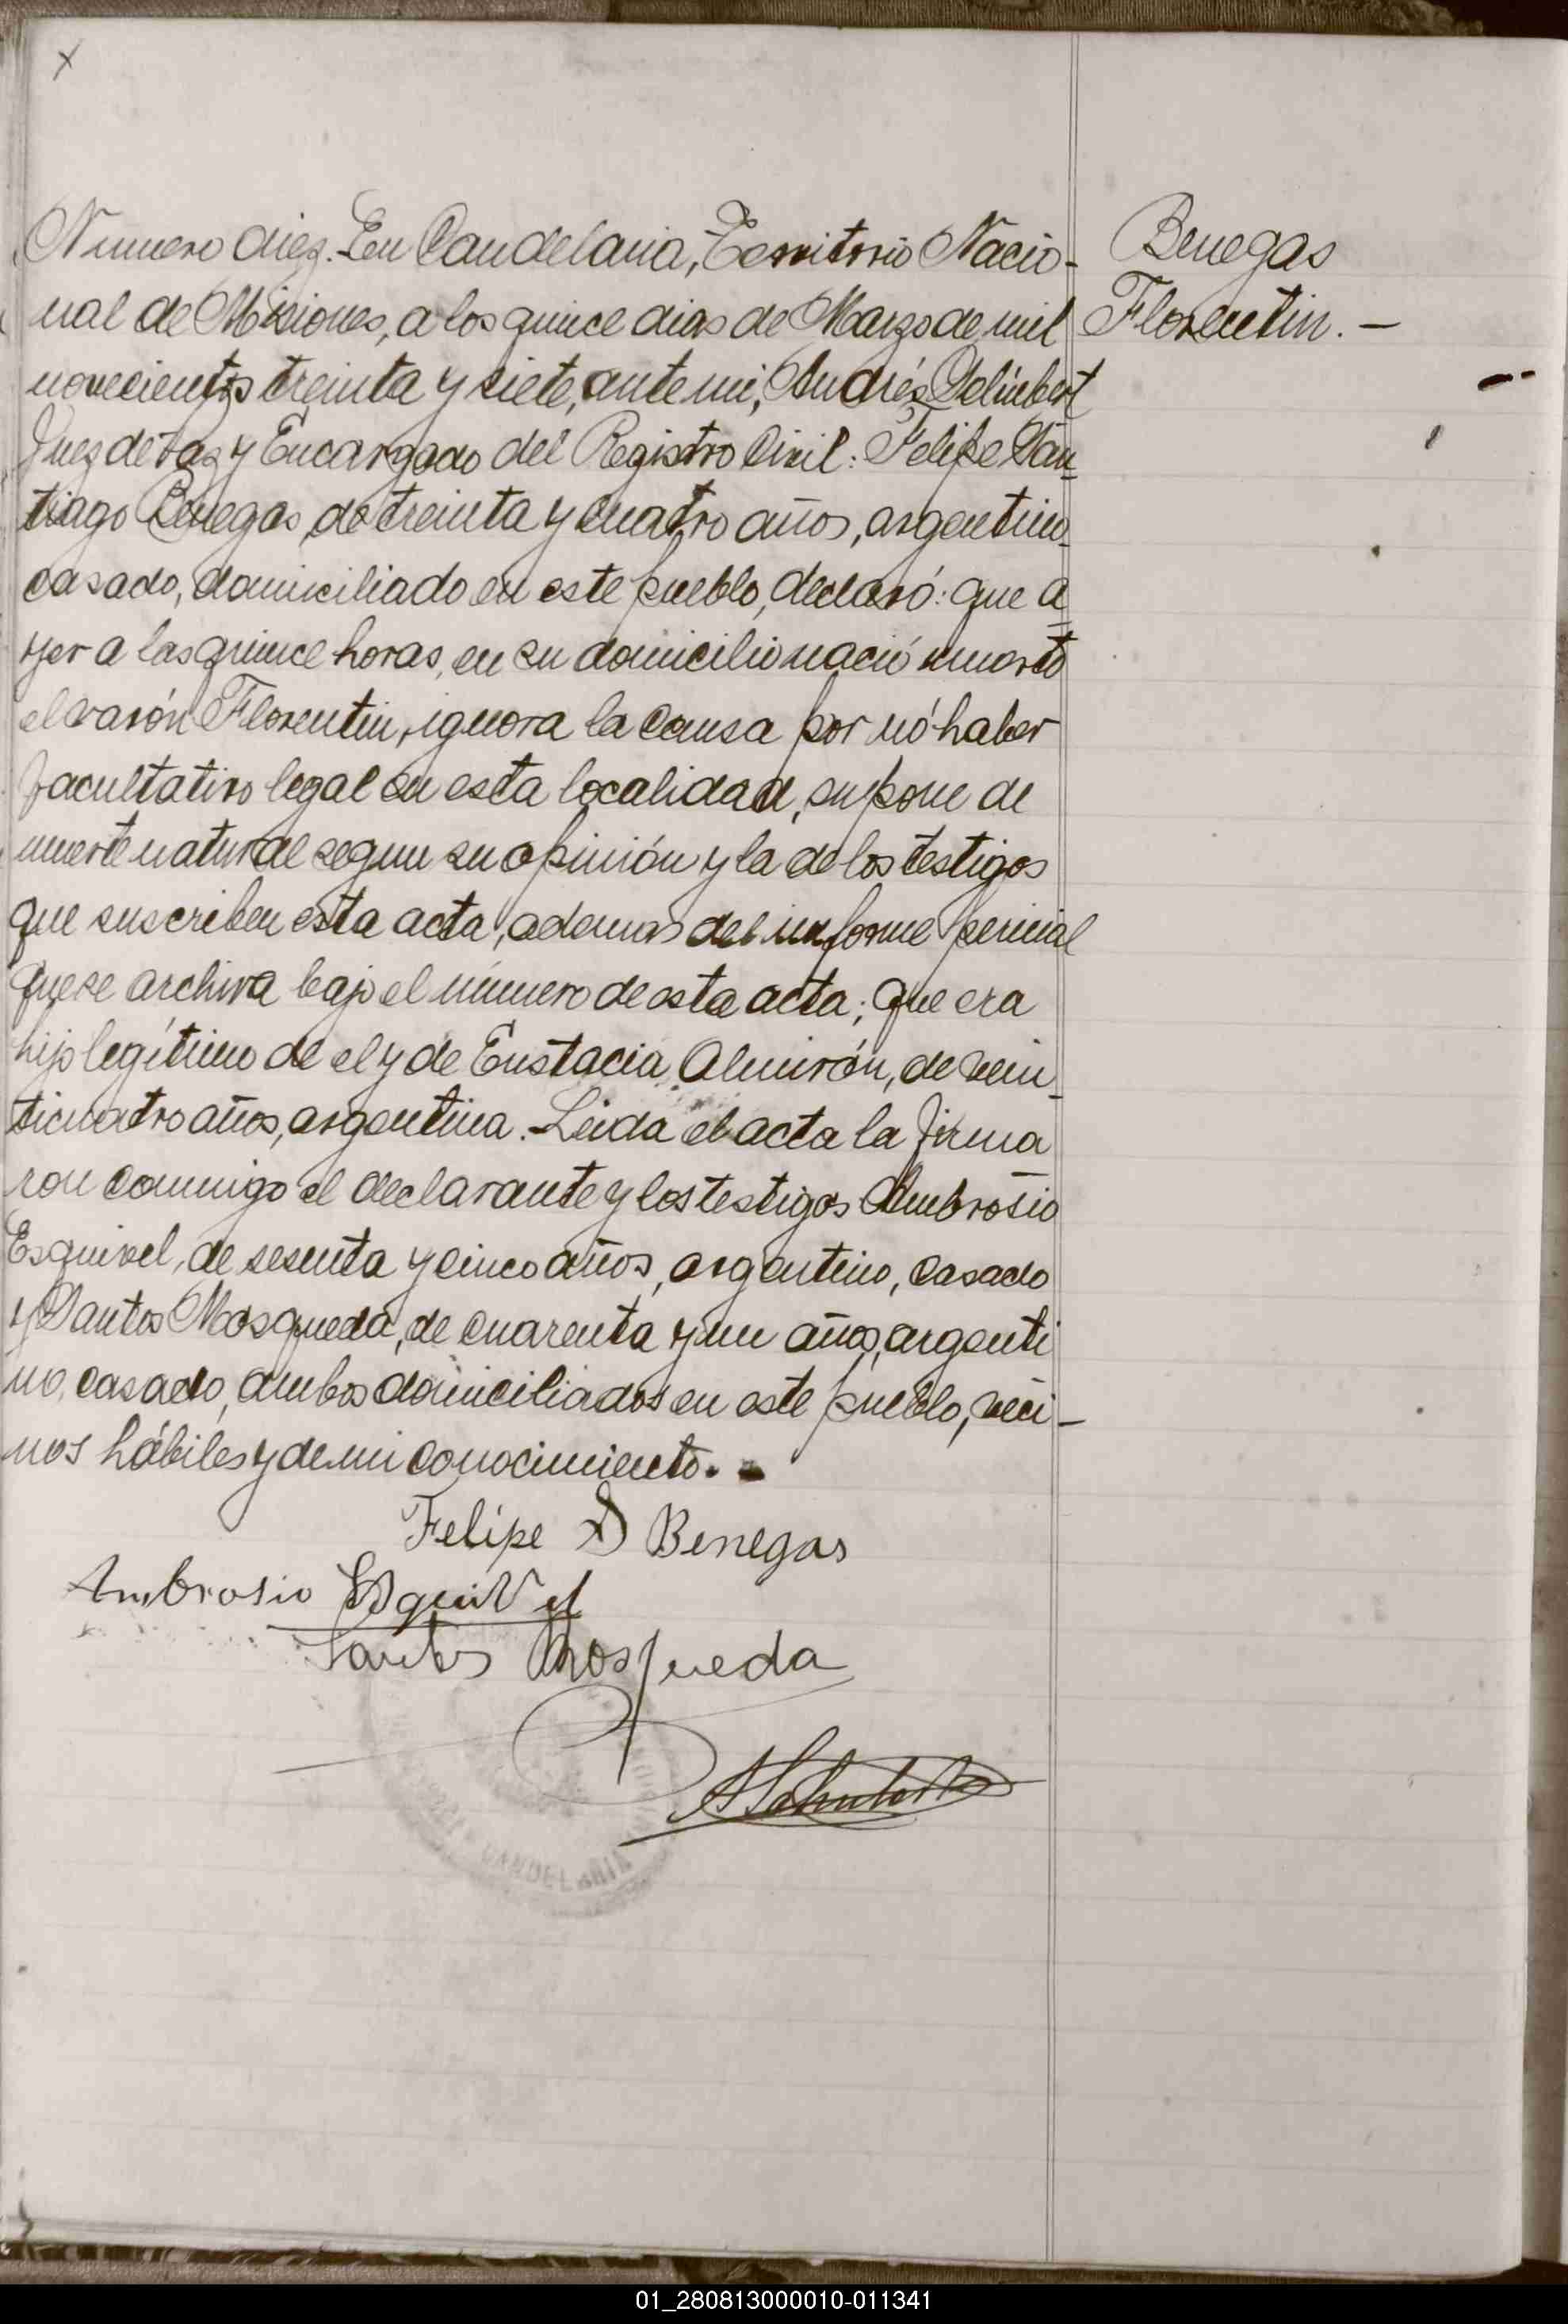 x
Numero diez.-En Candelaria, Territorio Nacio-
nal de Misiones, a los quince dias de Marzo de mil
novecientos treinta y siete, ante mi, Andrés
Juez de Paz y Encargado del Registro Civil: Felipe San-
tiago Benegas, de treinta y cuatro años, argentino-
casado, domiciliado en este pueblo, declaró: que a-
yer a las quince horas, en su domicilio nació muerto
el varón Florentin, ignora la causa por nó haber
facultativo legal en esta localidad, supone de
muerte natural segun su opinión y la de los testigos
que suscriben esta acta, ademas del informe pericial
que se archiva bajo el número de esta acta; que era
hijo legítimo de el y de Eustacia Almirón, de vein-
ticuatro años, argentina.-Leida el acta la firma
ron conmigo el declarante y los testigos Ambrosio
Esquivel, de sesenta y cinco años, argentino, casado
y Santos Mosqueda, de cuarenta y un años, argenti
no, casado, ambos domiciliados en este pueblo, veci-
nos hábiles y de mi conocimiento.-
Benegas
Florentin.-
Felipe S Benegas
Ambrosio Esquivel
Santos Mosqueda
CANDELARIA
01_280813000010-011341